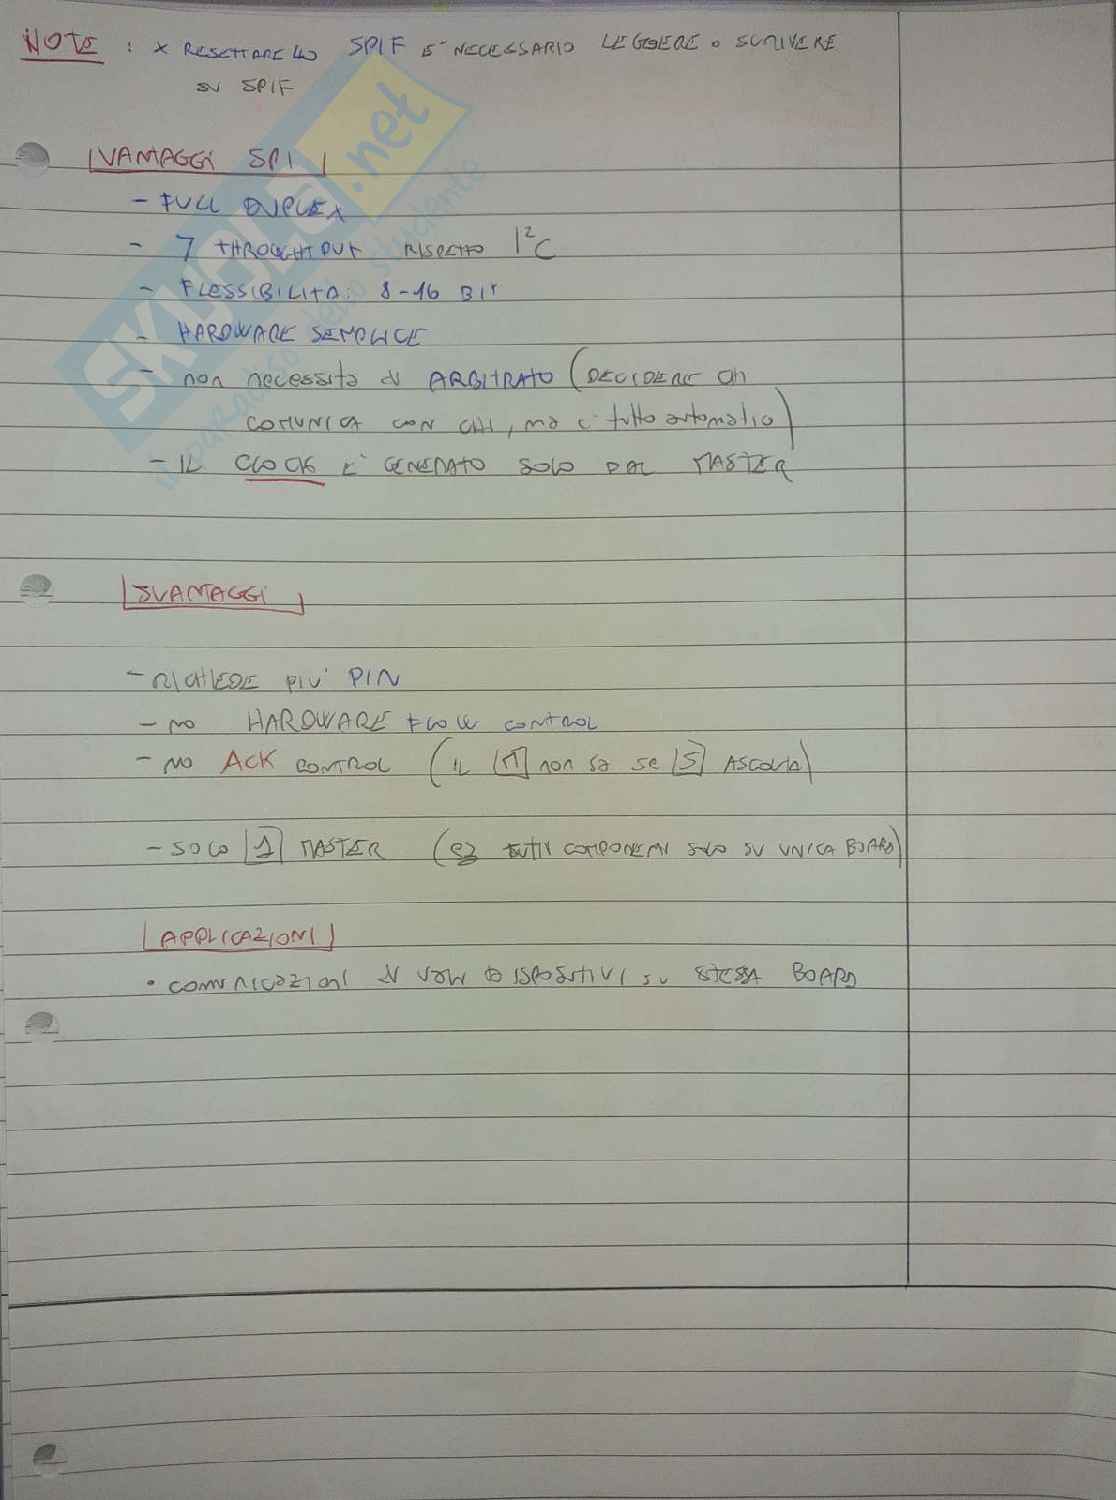 NOTE : x RESETTARE LO SPIF E' NECESSARIO LEGGERE o SCRIVERE
SU SPIF
VANTAGGI SPI
- FULL DUPLEX
- 7 THROUGHTPUT RISPETTO I²C
- FLESSIBILITÀ: 8-16 BIT
- HARDWARE SEMPLICE
- non necessita di ARBITRATO (DECIDERE CHI
COMUNICA CON CHI, ma è tutto automatico)
- IL CLOCK E' GENERATO SOLO DAL MASTER
SVANTAGGI
- RICHIEDE PIU' PIN
- NO HARDWARE FLOW CONTROL
- NO ACK CONTROL (IL M non sa se S ASCOLTA)
- SOLO 1 MASTER (es TUTTI COMPONENTI SOLO SU UNICA BOARD)
APPLICAZIONI
• COMUNICAZIONI DI VARI DISPOSITIVI SU STESSA BOARD
SKUOLA.net